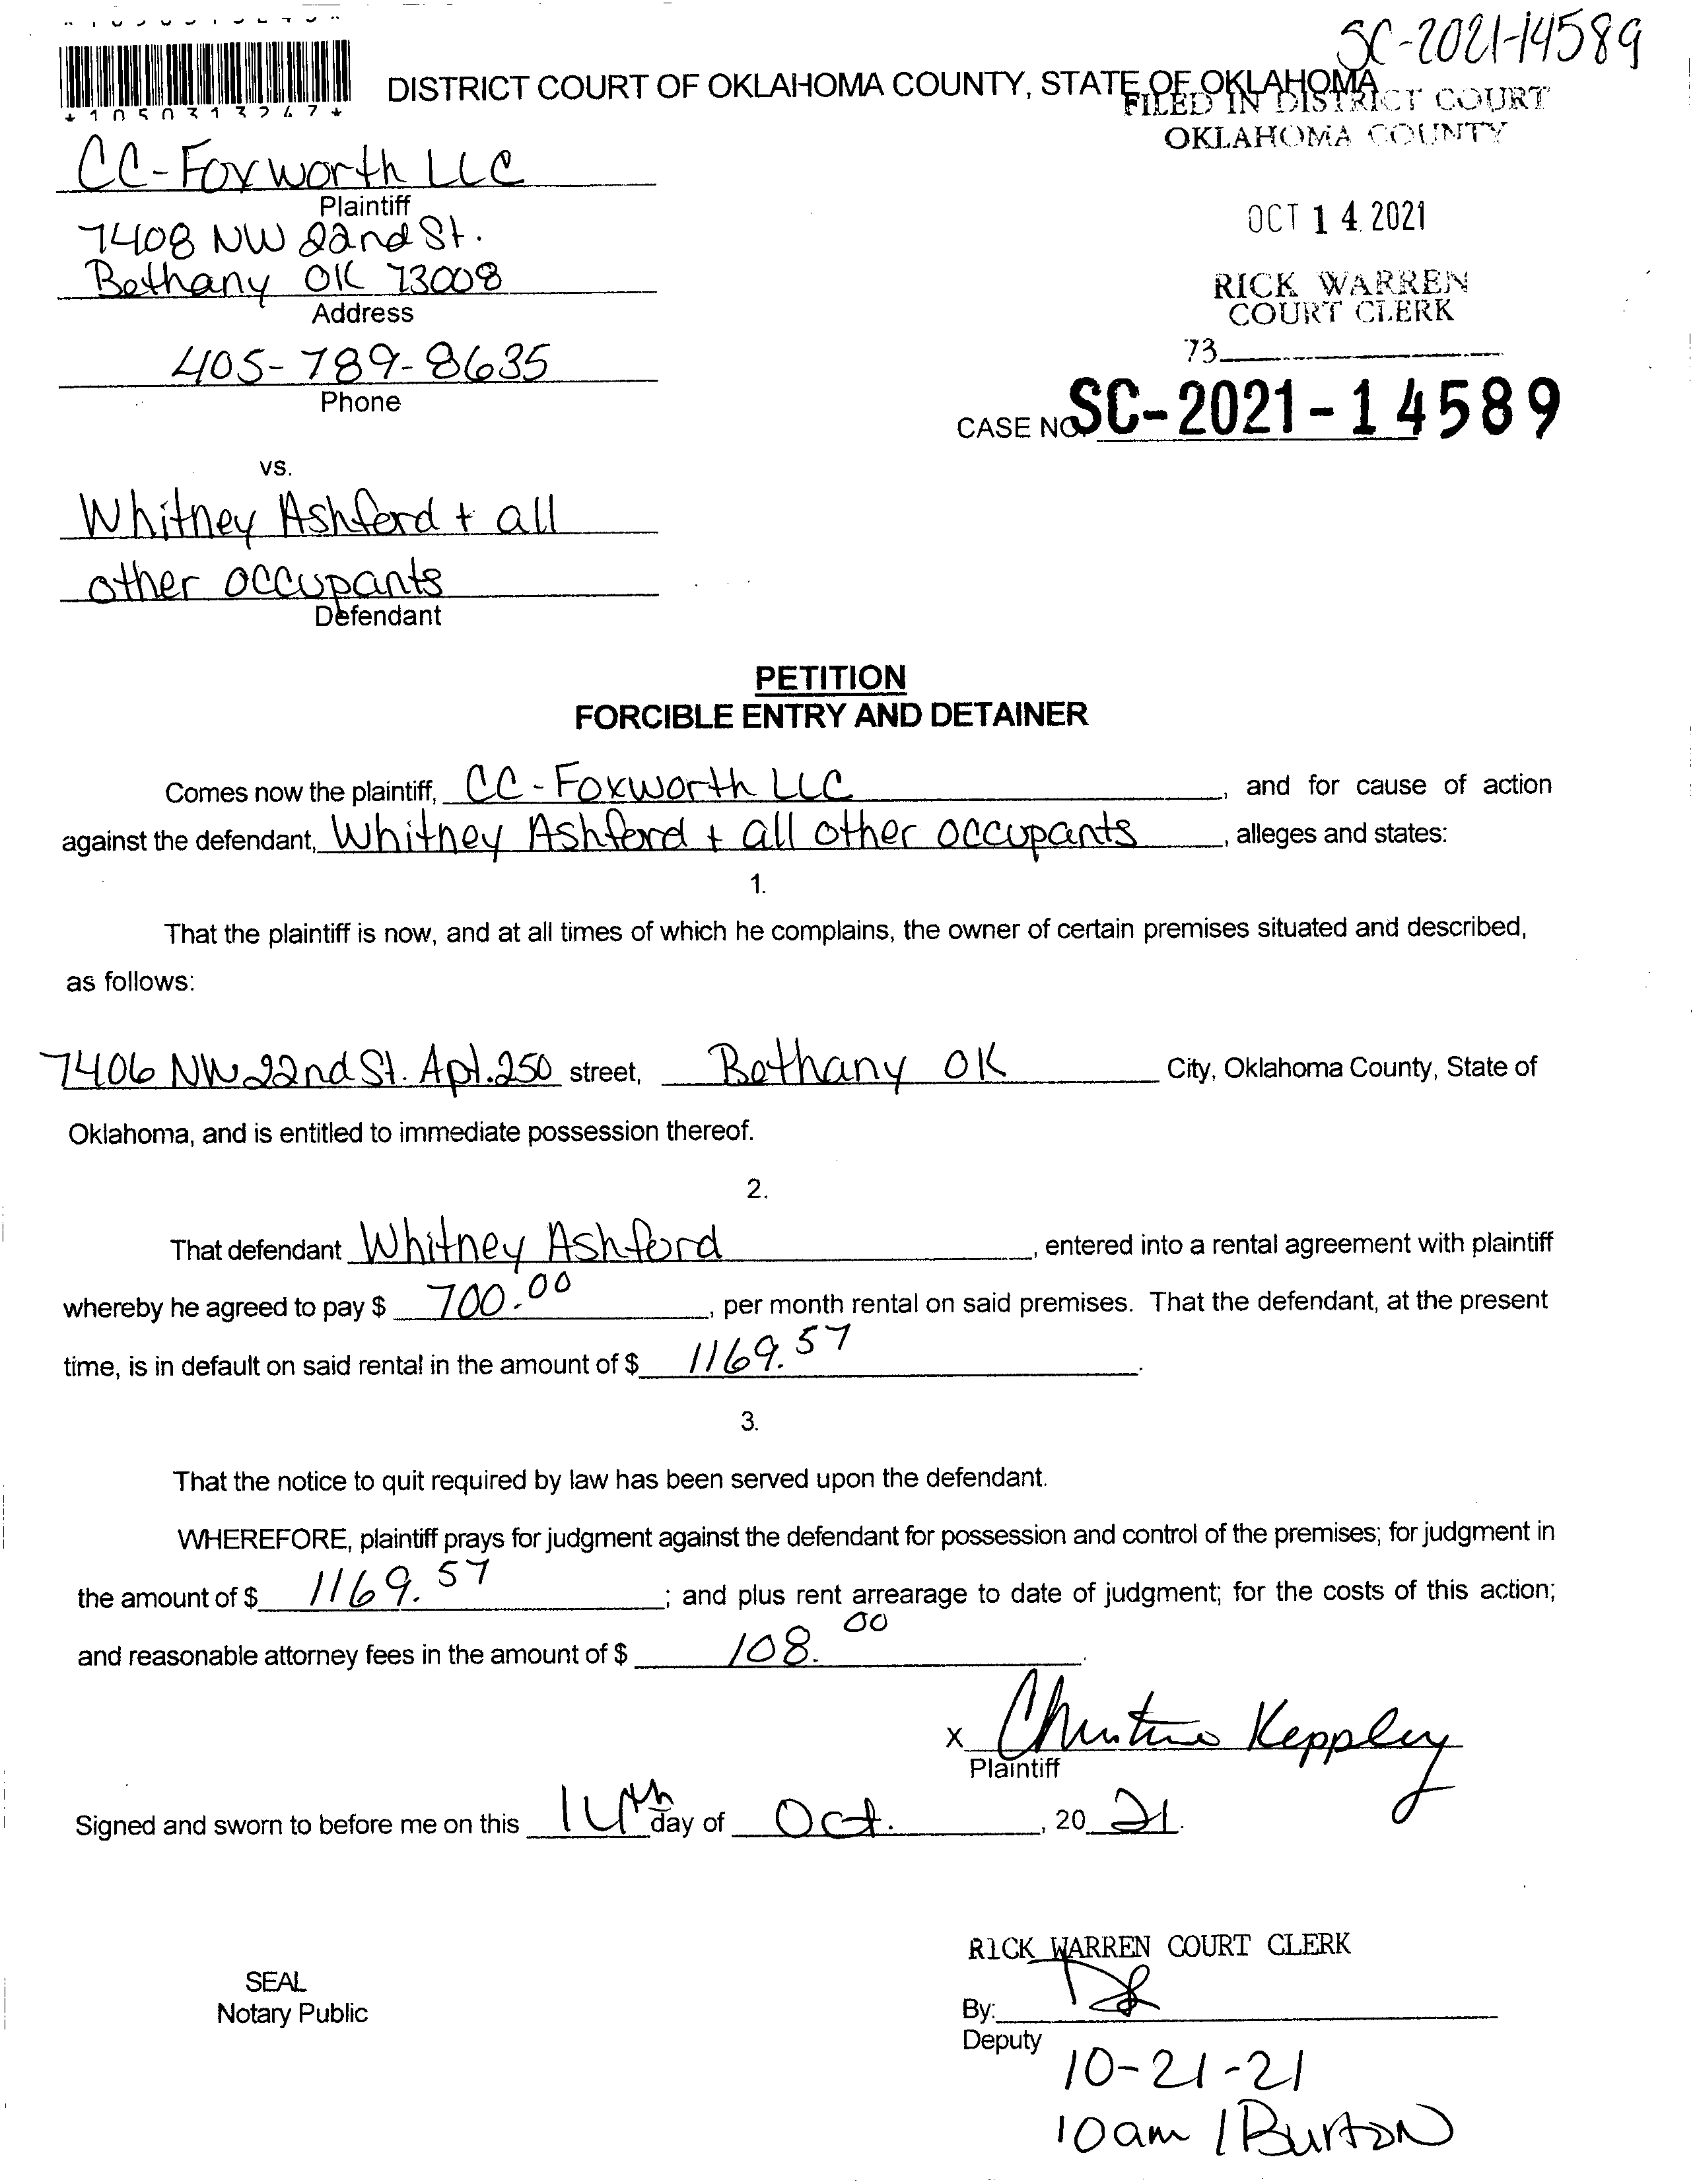 SC-2021-14589
DISTRICT COURT OF OKLAHOMA COUNTY, STATE OF OKLAHOMA
FILED IN DISTRICT COURT
OKLAHOMA COUNTY
*1050313247*
CC-Foxworth LLC
Plaintiff
7408 NW 22nd St.
Bethany OK 73008
Address
405-789-8635
Phone
OCT 14 2021
RICK WARREN
COURT CLERK
73
CASE NO. SC-2021-14589
vs.
Whitney Ashford + all
other occupants
Defendant
PETITION
FORCIBLE ENTRY AND DETAINER
Comes now the plaintiff, CC-Foxworth LLC, and for cause of action
against the defendant, Whitney Ashford + all other occupants, alleges and states:
1.
That the plaintiff is now, and at all times of which he complains, the owner of certain premises situated and described,
as follows:
7406 NW 22nd St. Apt. 250 street, Bethany OK City, Oklahoma County, State of
Oklahoma, and is entitled to immediate possession thereof.
2.
That defendant Whitney Ashford, entered into a rental agreement with plaintiff
whereby he agreed to pay $ 700.00, per month rental on said premises. That the defendant, at the present
time, is in default on said rental in the amount of $ 1169.57.
3.
That the notice to quit required by law has been served upon the defendant.
WHEREFORE, plaintiff prays for judgment against the defendant for possession and control of the premises; for judgment in
the amount of $ 1169.57; and plus rent arrearage to date of judgment; for the costs of this action;
and reasonable attorney fees in the amount of $ 108.00.
X Christina Keppley
Plaintiff
Signed and sworn to before me on this 14th day of Oct., 2021.
RICK WARREN COURT CLERK
SEAL
Notary Public
By:
Deputy
10-21-21
10am / Burton